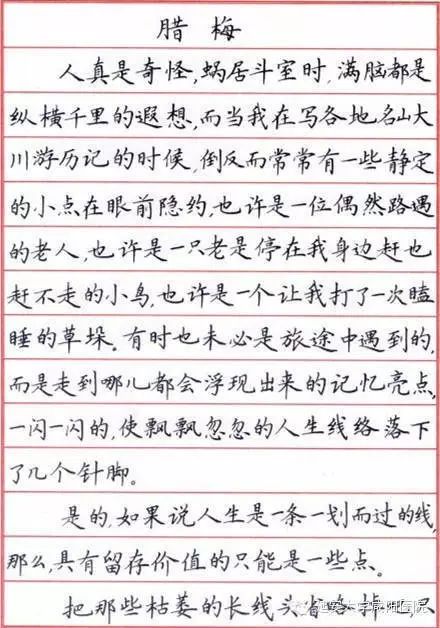 腊梅
人真是奇怪，蜗居斗室时，满脑都是
纵横千里的遐想，而当我在写各地名山大
川游历记的时候，倒反而常常有一些静定
的小点在眼前隐约，也许是一位偶然路遇
的老人，也许是一只老是停在我身边赶也
赶不走的小鸟，也许是一个让我打了一次瞌
睡的草垛。有时也未必是旅途中遇到的，
而是走到哪儿都会浮现出来的记忆亮点，
一闪一闪的，使飘飘忽忽的人生线络落下
了几个针脚。
是的，如果说人生是一条一划而过的线，
那么，具有留存价值的只能是一些点。
把那些枯萎的长线头省略掉吧，只